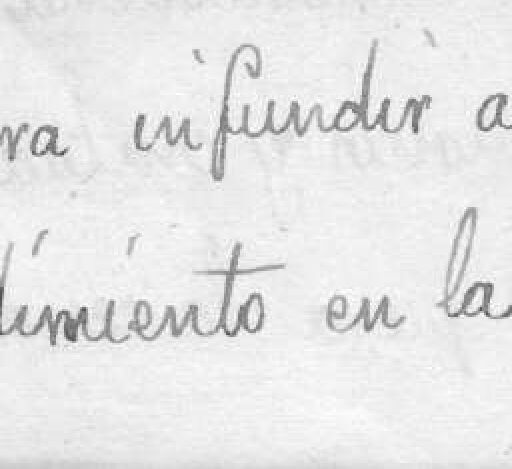 ra infundir a
dimiento en la